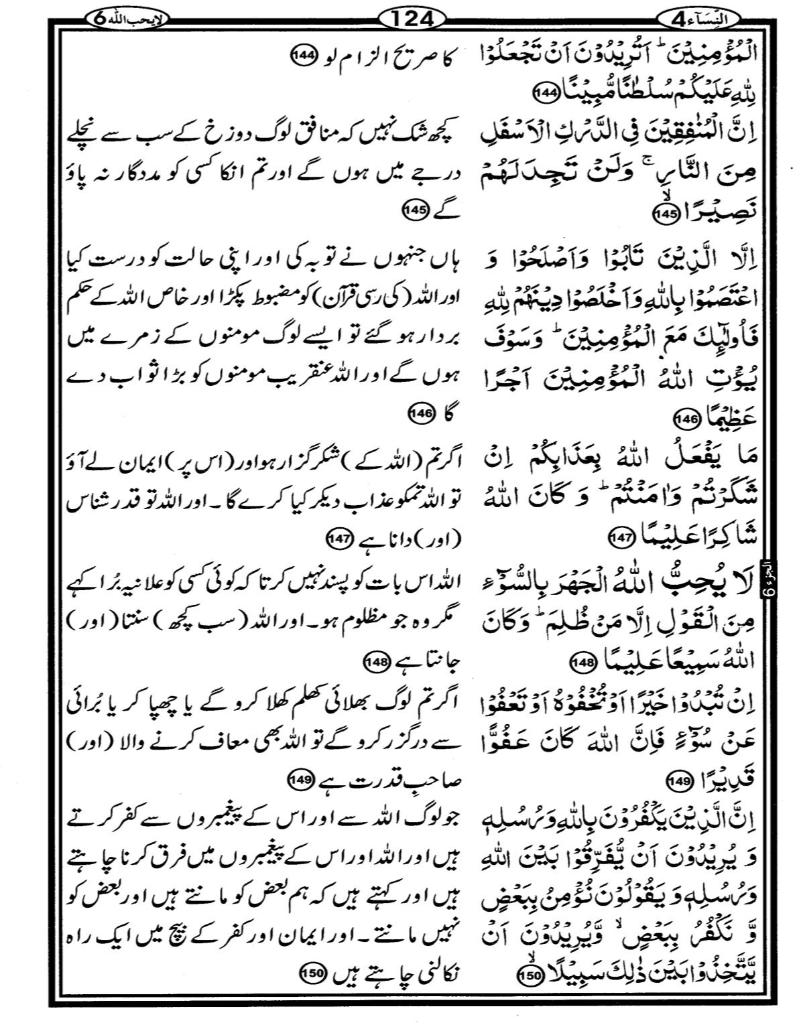 النّسآء 4
124
لایحب اللہ 6
الۡمُؤۡمِنِیۡنَ ؕ اَتُرِیۡدُوۡنَ اَنۡ تَجۡعَلُوۡا
لِلّٰہِ عَلَیۡکُمۡ سُلۡطٰنًا مُّبِیۡنًا 144
اِنَّ الۡمُنٰفِقِیۡنَ فِی الدَّرۡکِ الۡاَسۡفَلِ
مِنَ النَّارِ ۚ وَلَنۡ تَجِدَ لَہُمۡ
نَصِیۡرًا ۙ 145
اِلَّا الَّذِیۡنَ تَابُوۡا وَاَصۡلَحُوۡا وَ
اعۡتَصَمُوۡا بِاللّٰہِ وَاَخۡلَصُوۡا دِیۡنَہُمۡ لِلّٰہِ
فَاُولٰٓئِکَ مَعَ الۡمُؤۡمِنِیۡنَ ؕ وَسَوۡفَ
یُؤۡتِ اللّٰہُ الۡمُؤۡمِنِیۡنَ اَجۡرًا
عَظِیۡمًا 146
مَا یَفۡعَلُ اللّٰہُ بِعَذَابِکُمۡ اِنۡ
شَکَرۡتُمۡ وَاٰمَنۡتُمۡ ؕ وَکَانَ اللّٰہُ
شَاکِرًا عَلِیۡمًا 147
لَا یُحِبُّ اللّٰہُ الۡجَہۡرَ بِالسُّوۡٓءِ
الجزء 6
مِنَ الۡقَوۡلِ اِلَّا مَنۡ ظُلِمَ ؕ وَکَانَ
اللّٰہُ سَمِیۡعًا عَلِیۡمًا 148
اِنۡ تُبۡدُوۡا خَیۡرًا اَوۡ تُخۡفُوۡہُ اَوۡ تَعۡفُوۡا
عَنۡ سُوۡٓءٍ فَاِنَّ اللّٰہَ کَانَ عَفُوًّا
قَدِیۡرًا 149
اِنَّ الَّذِیۡنَ یَکۡفُرُوۡنَ بِاللّٰہِ وَرُسُلِہٖ
وَ یُرِیۡدُوۡنَ اَنۡ یُّفَرِّقُوۡا بَیۡنَ اللّٰہِ
وَرُسُلِہٖ وَ یَقُوۡلُوۡنَ نُؤۡمِنُ بِبَعۡضٍ
وَّ نَکۡفُرُ بِبَعۡضٍ ۙ وَّیُرِیۡدُوۡنَ اَنۡ
یَّتَّخِذُوۡا بَیۡنَ ذٰلِکَ سَبِیۡلًا ۙ 150
کا صریح الزام لو 144
کچھ شک نہیں کہ منافق لوگ دوزخ کے سب سے نچلے
درجے میں ہوں گے اور تم انکا کسی کو مددگار نہ پاؤ
گے 145
ہاں جنہوں نے توبہ کی اور اپنی حالت کو درست کیا
اور اللہ (کی رسی قرآن) کو مضبوط پکڑا اور خاص اللہ کے حکم
بردار ہو گئے تو ایسے لوگ مومنوں کے زمرے میں
ہوں گے اور اللہ عنقریب مومنوں کو بڑا ثواب دے
گا 146
اگر تم (اللہ کے) شکر گزار ہو اور (اس پر) ایمان لے آؤ
تو اللہ تمکو عذاب دیکر کیا کرے گا ۔ اور اللہ تو قدر شناس
(اور) دانا ہے 147
اللہ اس بات کو پسند نہیں کرتا کہ کوئی کسی کو علانیہ بُرا کہے
مگر وہ جو مظلوم ہو۔ اور اللہ (سب کچھ) سنتا (اور)
جانتا ہے 148
اگر تم لوگ بھلائی کھلم کھلا کرو گے یا چھپا کر یا بُرائی
سے درگزر کرو گے تو اللہ بھی معاف کرنے والا (اور)
صاحبِ قدرت ہے 149
جو لوگ اللہ سے اور اس کے پیغمبروں سے کفر کرتے
ہیں اور اللہ اور اس کے پیغمبروں میں فرق کرنا چاہتے
ہیں اور کہتے ہیں کہ ہم بعض کو مانتے ہیں اور بعض کو
نہیں مانتے ۔ اور ایمان اور کفر کے بیچ میں ایک راہ
نکالنی چاہتے ہیں 150